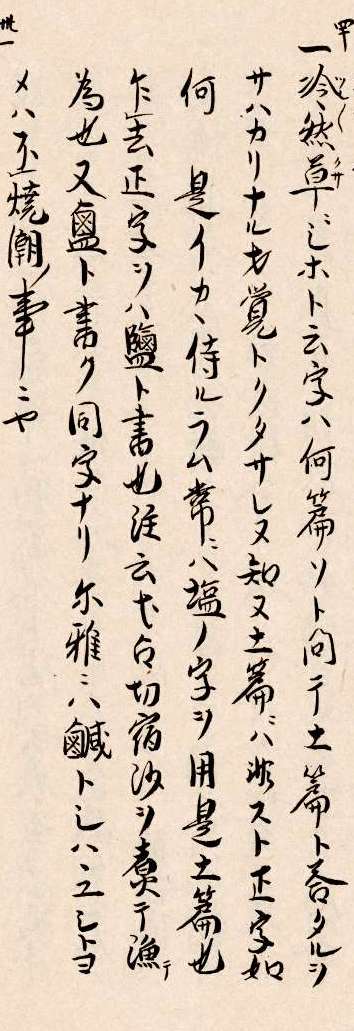 一冷然草ニシホト云字ハ何篇ソト問テ土篇ト答タルヲ
サハカリナル才覚トクタサレヌ知ヌ土篇ニハ非スト正字如
何 是イカヽ侍ルラム常ニハ塩ノ字ヲ用是土篇也
乍去正字ヲハ鹽ト書也注云 切宿沙ヲ煮テ漁
為也又鹽ト書ク同字ナリ尓雅ニハ鹹トシハ
メハ 焼潮事ニや